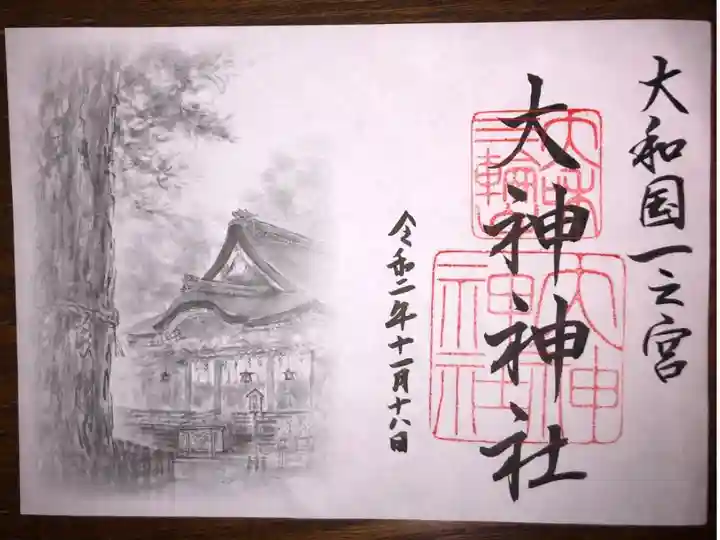 大和国一之宮
大神神社
大神神社
令和二年十一月十八日